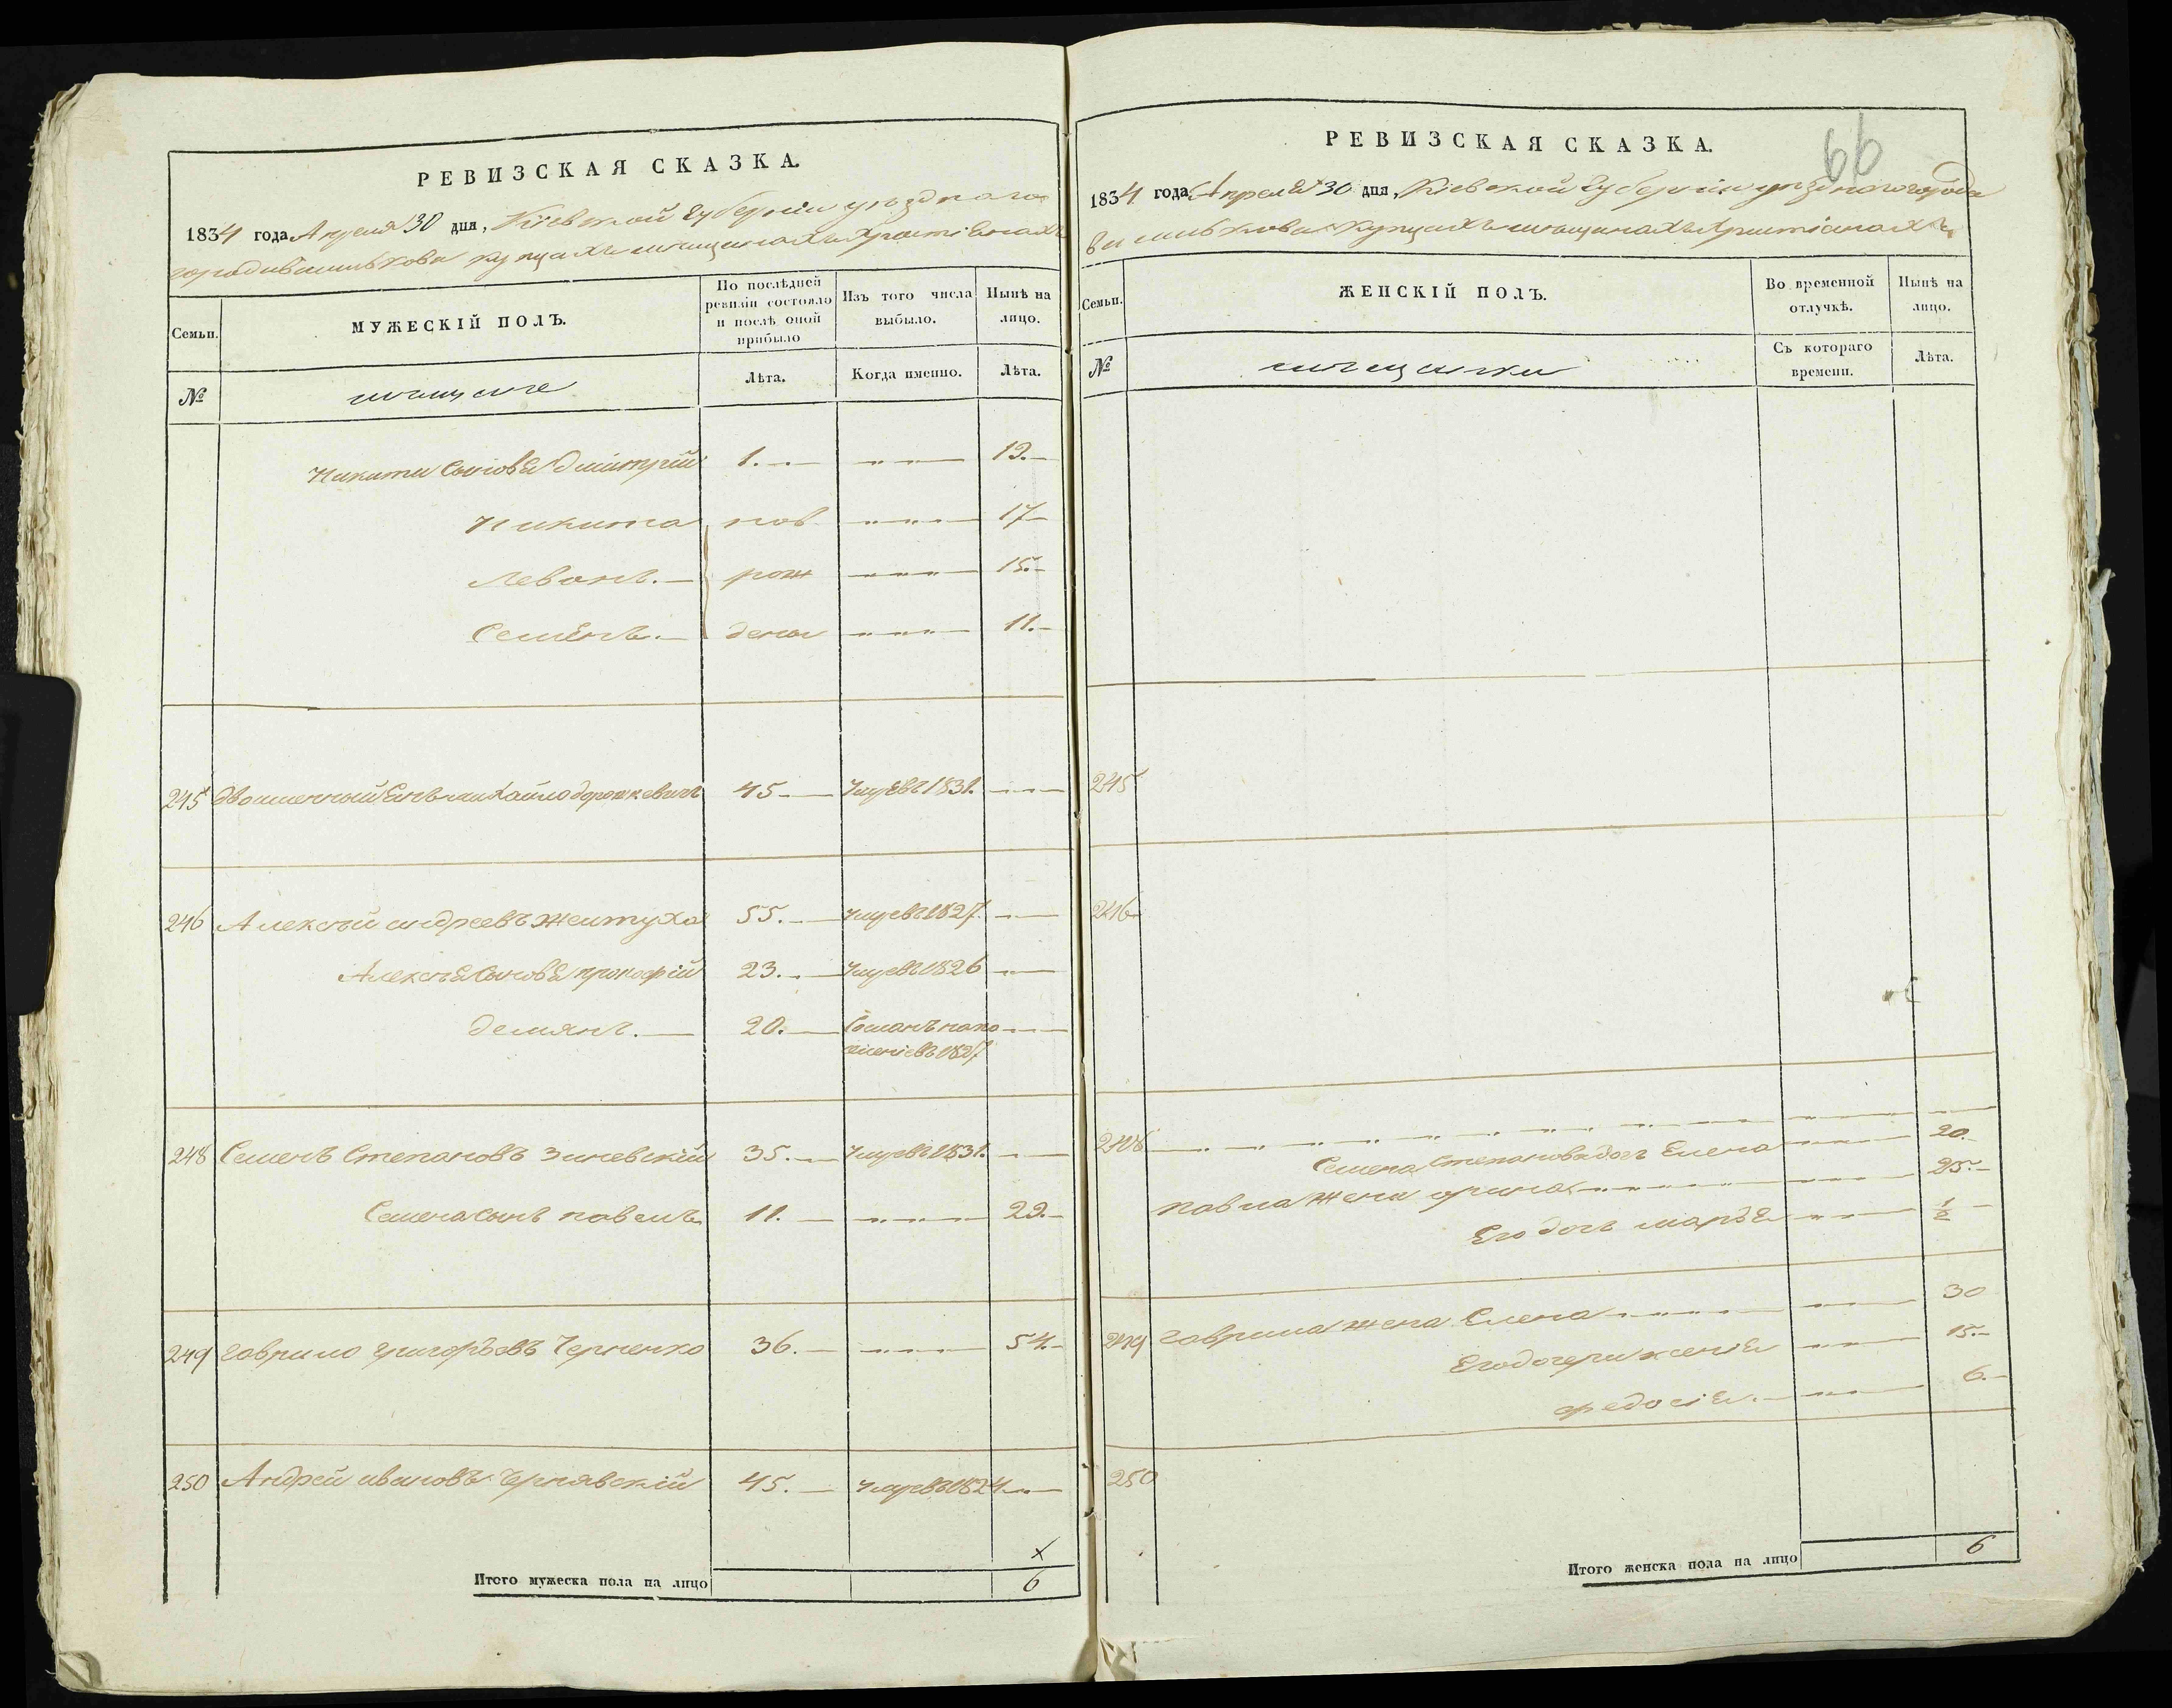 РЕВИЗСКАЯ СКАЗКА.
1834 года Апреля 30 дня, Кіевской Губерніи уѣзднаго
города Василькова купцахъ мѣщанахъ Христіянахъ
Семьи.
МУЖЕСКІЙ ПОЛЪ.
По послѣдней ревизіи состояло и послѣ оной прибыло
Изъ того числа выбыло.
Нынѣ на лицо.
№
мѣщане
Лѣта.
Когда именно.
Лѣта.
Никиты Сыновья Дмитрій 1. 19.
Никита нов 17
Леонъ. рож 15.
Семенъ. дены 11.
245 Михайло дорошкевичъ 45 Умре въ 1831.
246 Алексѣй андреевъ Желтуха 55. Умре въ 1827.
Алексѣя Сыновья прокофій 23. Умре въ 1826
демянъ. 20. Сосланъ на по
селеніе въ 1827
248 Семенъ Степановъ Зиневскій 35. Умре въ 1831.
Семена Сынъ павелъ 11. 29.
249 гаврило григорьевъ Черненко 36. 54.
250 Андрей ивановъ Чернявскій 45. Умре въ 1824
х
Итого мужеска пола на лицо 6
66
РЕВИЗСКАЯ СКАЗКА.
1834 года Апреля 30 дня, Кіевской Губерніи уѣзднаго города
Василькова Купцахъ мѣщанахъ Христіянахъ
Семьи.
ЖЕНСКІЙ ПОЛЪ.
Во временной отлучкѣ.
Нынѣ на лицо.
№
мѣщанки
Съ котораго времени.
Лѣта.
245
246
248
Семена Степанова дочь Елена 20.
павла жена ирина 25.
Его дочь марья ½
249 гаврила жена Елена 30
Его дочери ксенія 15.
федосія. 6.
250
Итого женска пола на лицо 6